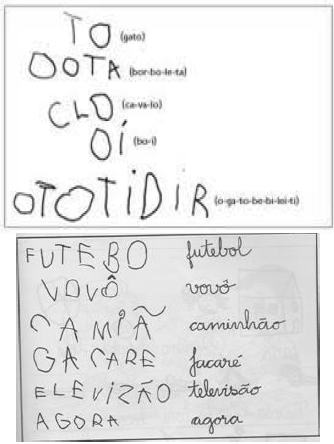 TO (gato)
OOTA (bor-bo-le-ta)
CLO (ca-va-lo)
OÍ (bo-i)
OTOTIDIR (o-ga-to-be-bi-lei-ti)
FUTEBO futebol
VOVÔ vovô
CAMIÃ caminhão
GACARE jacaré
ELEVIZÃO televisão
AGORA agora